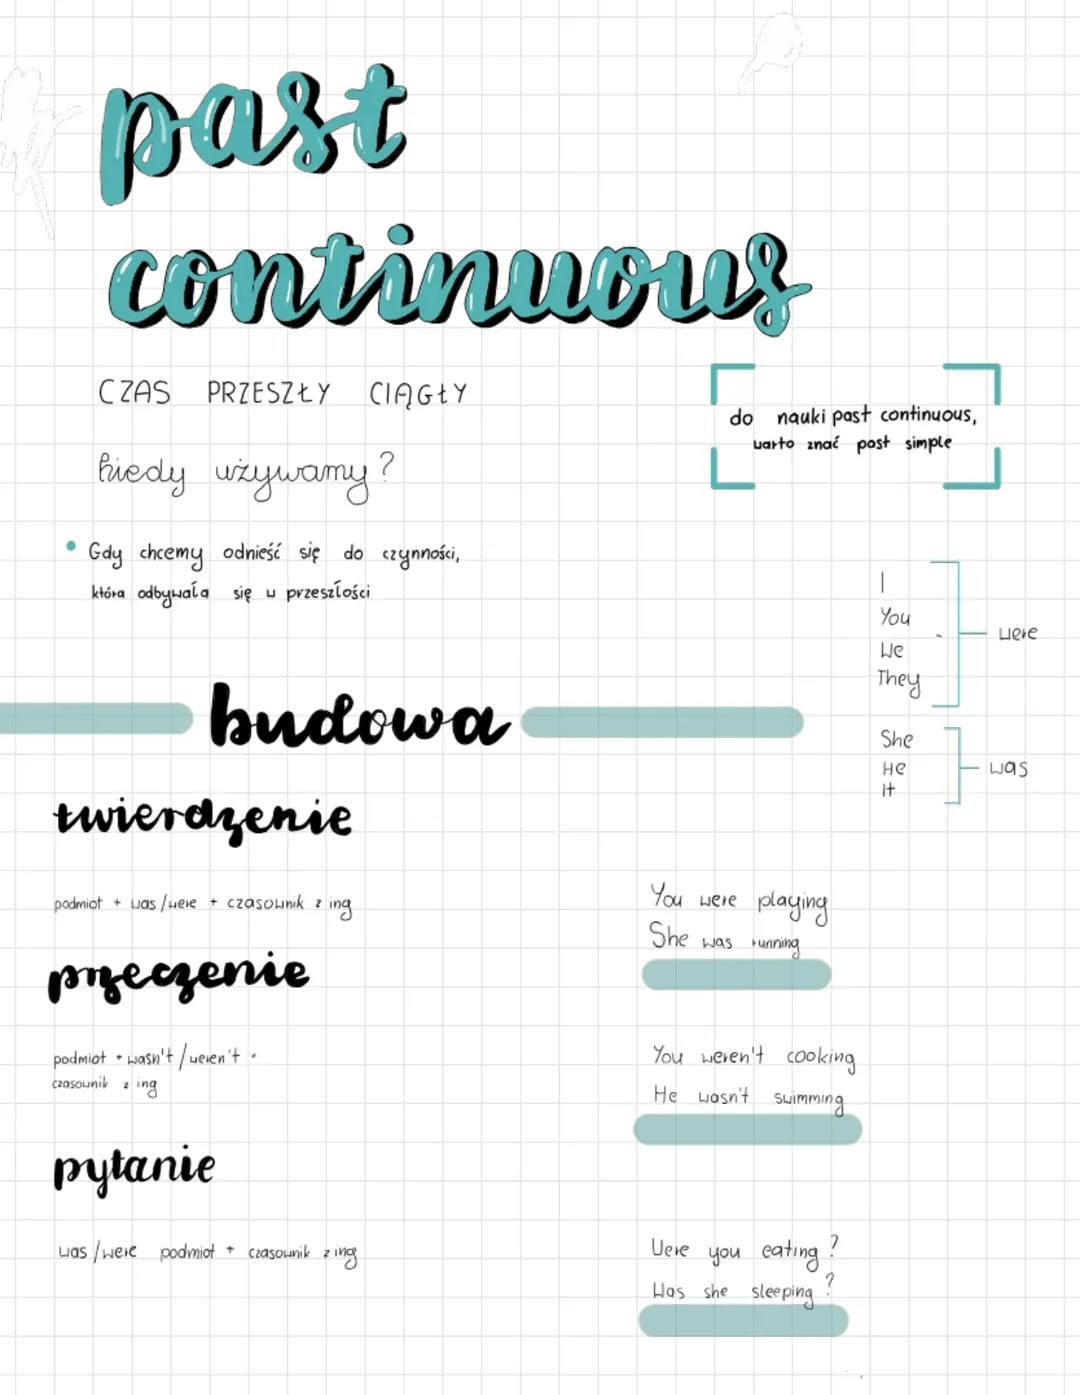 past
continuous
CZAS PRZESZŁY CIĄGŁY
do nauki past continuous,
warto znać past simple
kiedy używamy?
• Gdy chcemy odnieść się do czynności,
która odbywała się w przeszłości
I
You
We
They
were
She
He
It
was
budowa
twierdzenie
podmiot + was/were + czasownik z ing
You were playing
She was running
przeczenie
podmiot + wasn't/weren't +
czasownik z ing
You weren't cooking
He wasn't swimming
pytanie
was/were podmiot + czasownik z ing
Were you eating?
Was she sleeping?